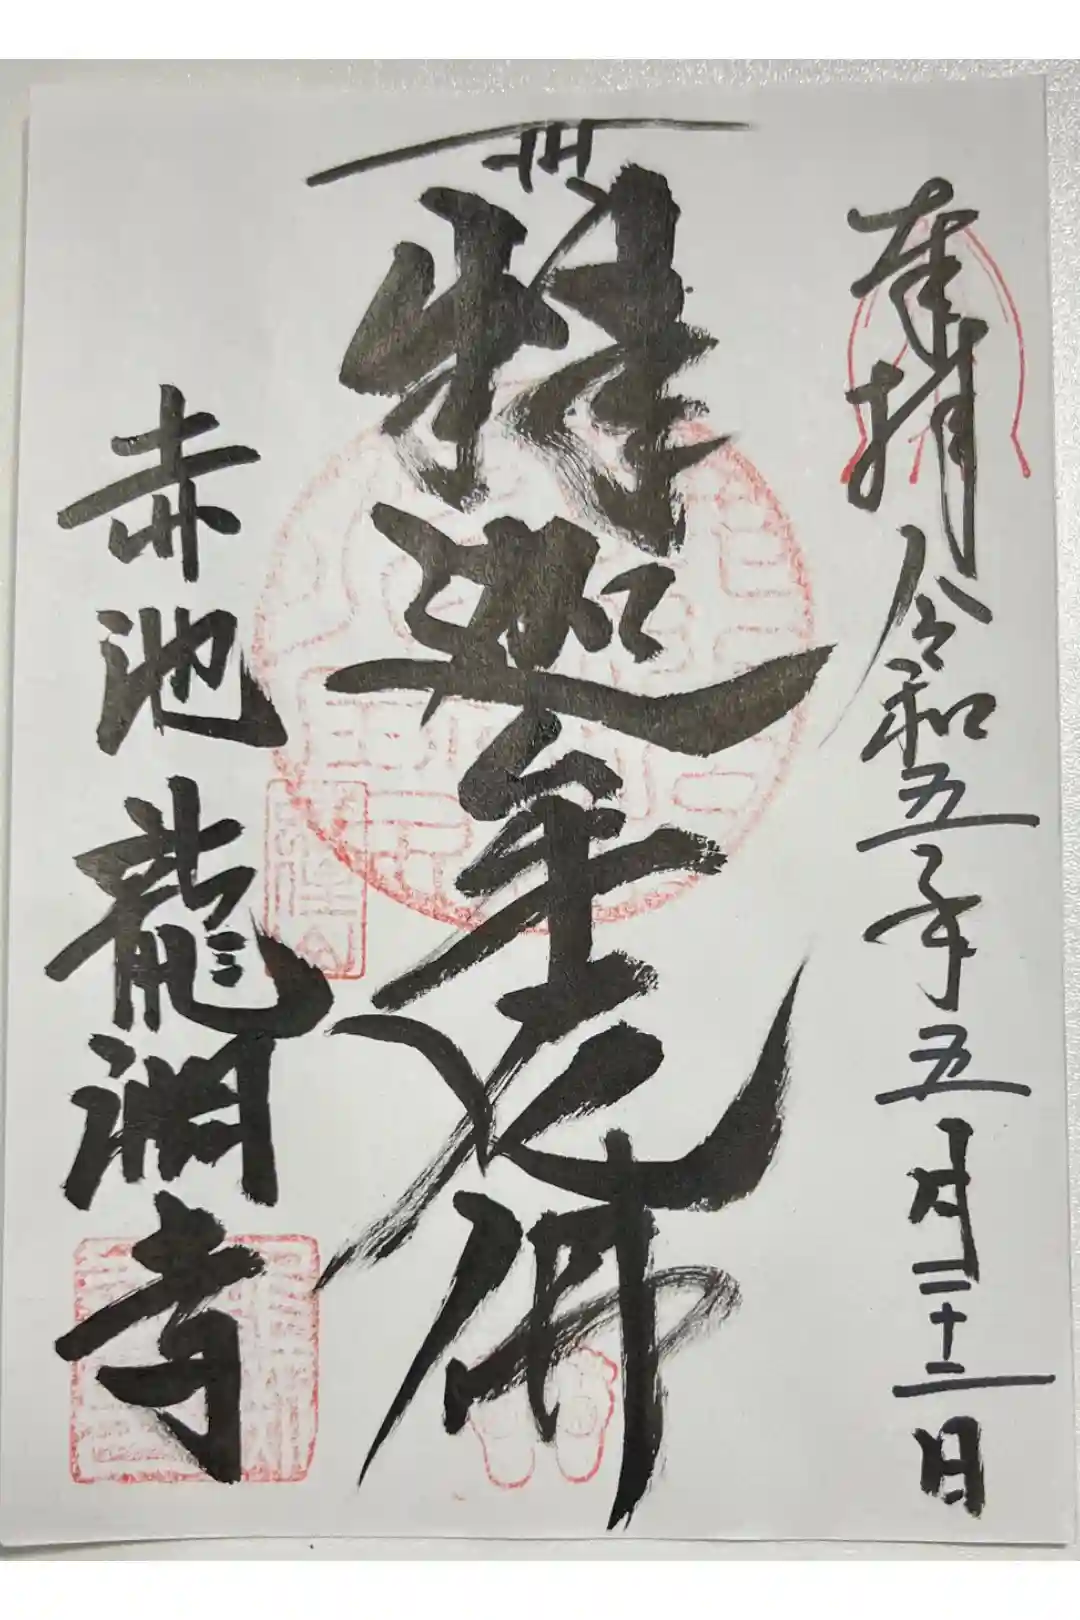 奉拝 令和五年五月二十二日
釋迦牟尼佛
赤池 龍淵寺